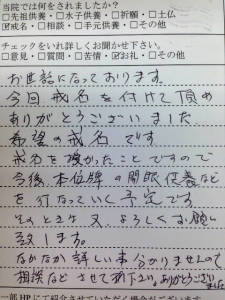 当院では何をされましたか？
□先祖供養・□水子供養・□祈願・□土仏
☑戒名・□相談・□手元供養・□その他
チェックをいれ詳しくお聞かせ下さい。
□意見・□質問・□苦情・☑お礼・□その他
お世話になっております。
今回戒名を付けて頂き
ありがとうございました
希望の戒名です
戒名を授かったことですので
今後本位牌の開眼供養など
を行なっていく予定です。
そのときは又よろしくお願い
致します。
なかなか詳しい事分かりませんので
相談などさせて下さい。ありがとうござい
一部HPにてご紹介させていただく場合がございます